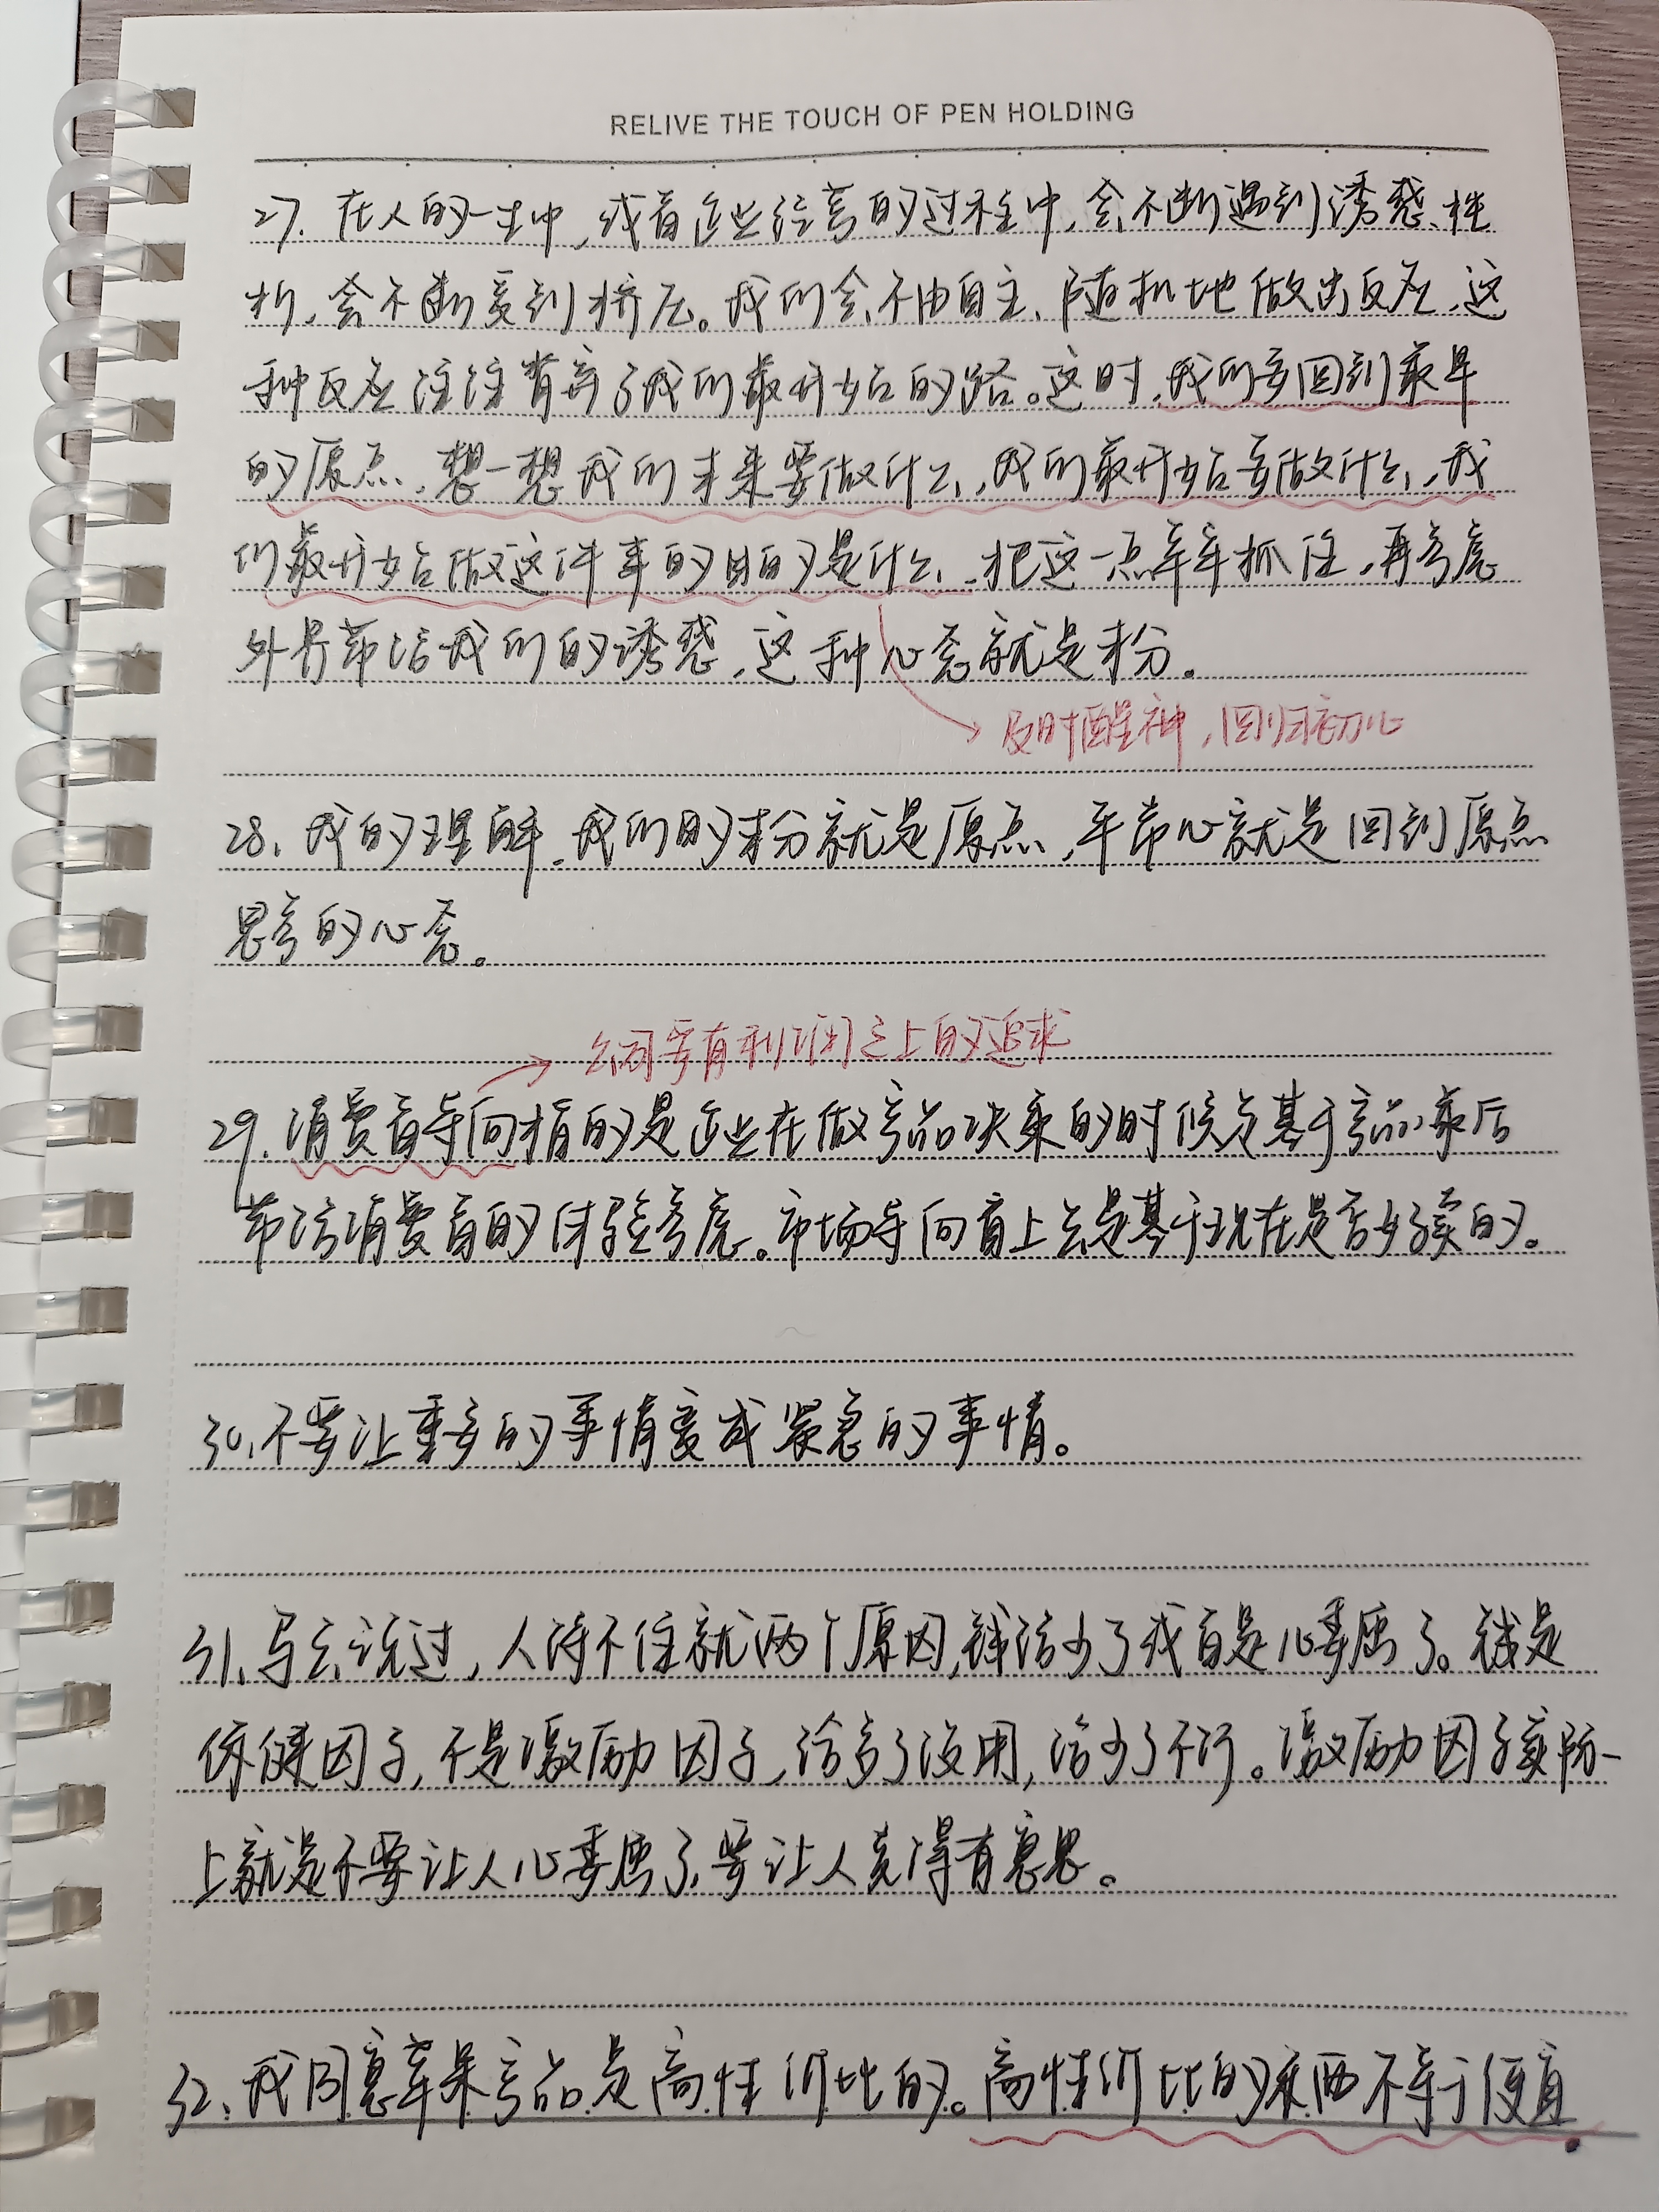 RELIVE THE TOUCH OF PEN HOLDING
27. 在人的一生中,或者企业经营的过程中,会不断遇到诱惑、挫
折,会不断受到挤压。我们会不由自主、随机地做出反应,这
种反应往往背弃了我们最开始的路。这时,我们要回到最早
的原点,想一想我们未来要做什么,我们最开始要做什么,我
们最开始做这件事的目的是什么,把这一点牢牢抓住,再考虑
外界带给我们的诱惑,这种心态就是本分。
及时醒神,回归初心
28、我的理解,我们的本分就是原点,平常心就是回到原点
思考的心态。
公司要有利润之上的追求
29.消费者导向指的是企业在做产品决策的时候是基于产品最后
带给消费者的体验考虑。市场导向者上去是基于现在是否好卖的。
30、不要让重要的事情变成紧急的事情。
31、马云说过,人待不住就两个原因,钱给少了或者是心委屈了。钱是
保健因子,不是激励因子,给多了没用,给少了不行。激励因子实际
上就是不要让人心委屈了,要让人觉得有意思。
32、我同意苹果产品是高性价比的。高性价比的东西不等于便宜.